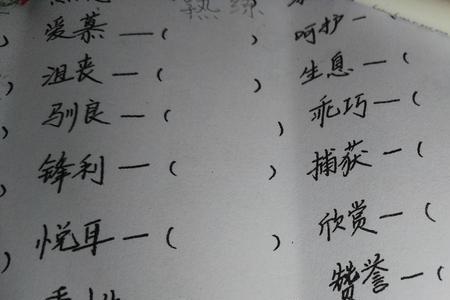 熟练
爱慕—(  )  呵护—
沮丧—(  )  生息—(
驯良—(  )  乖巧—(
锋利—(  )  捕获—(
悦耳—(  )  欣赏—(
赞誉—(